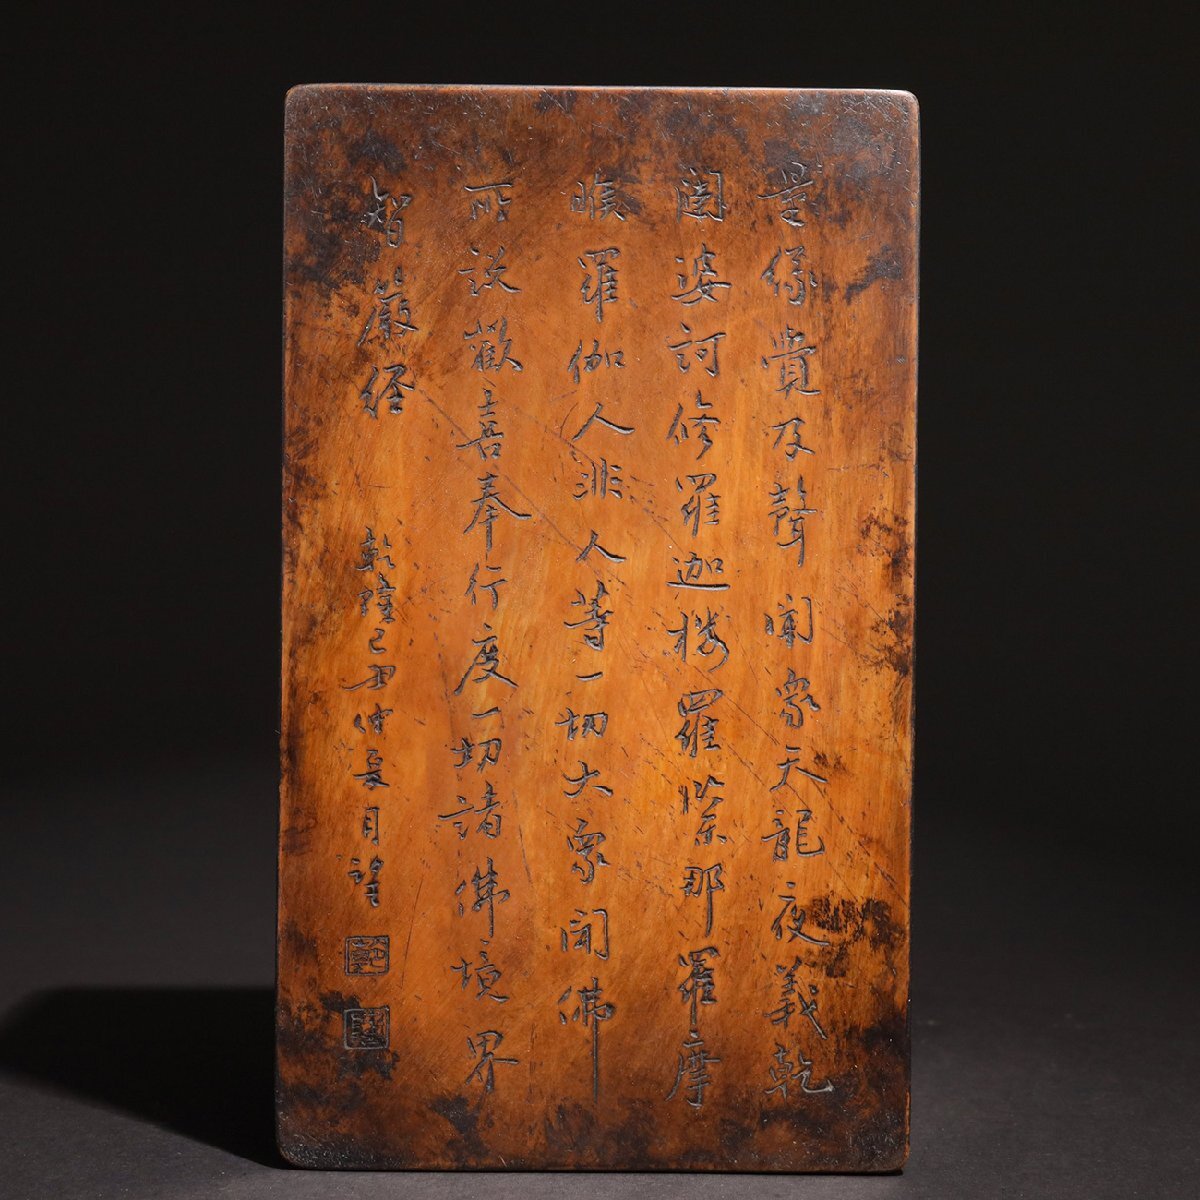 量緣貴及聲聞衆天龍夜義乾
闥婆訶修羅迦楼羅緊那羅摩
睺羅伽人非人等一切大衆聞佛
所説歡喜奉行度一切諸佛境界
智嚴経
乾隆己丑仲長月望
乾
隆